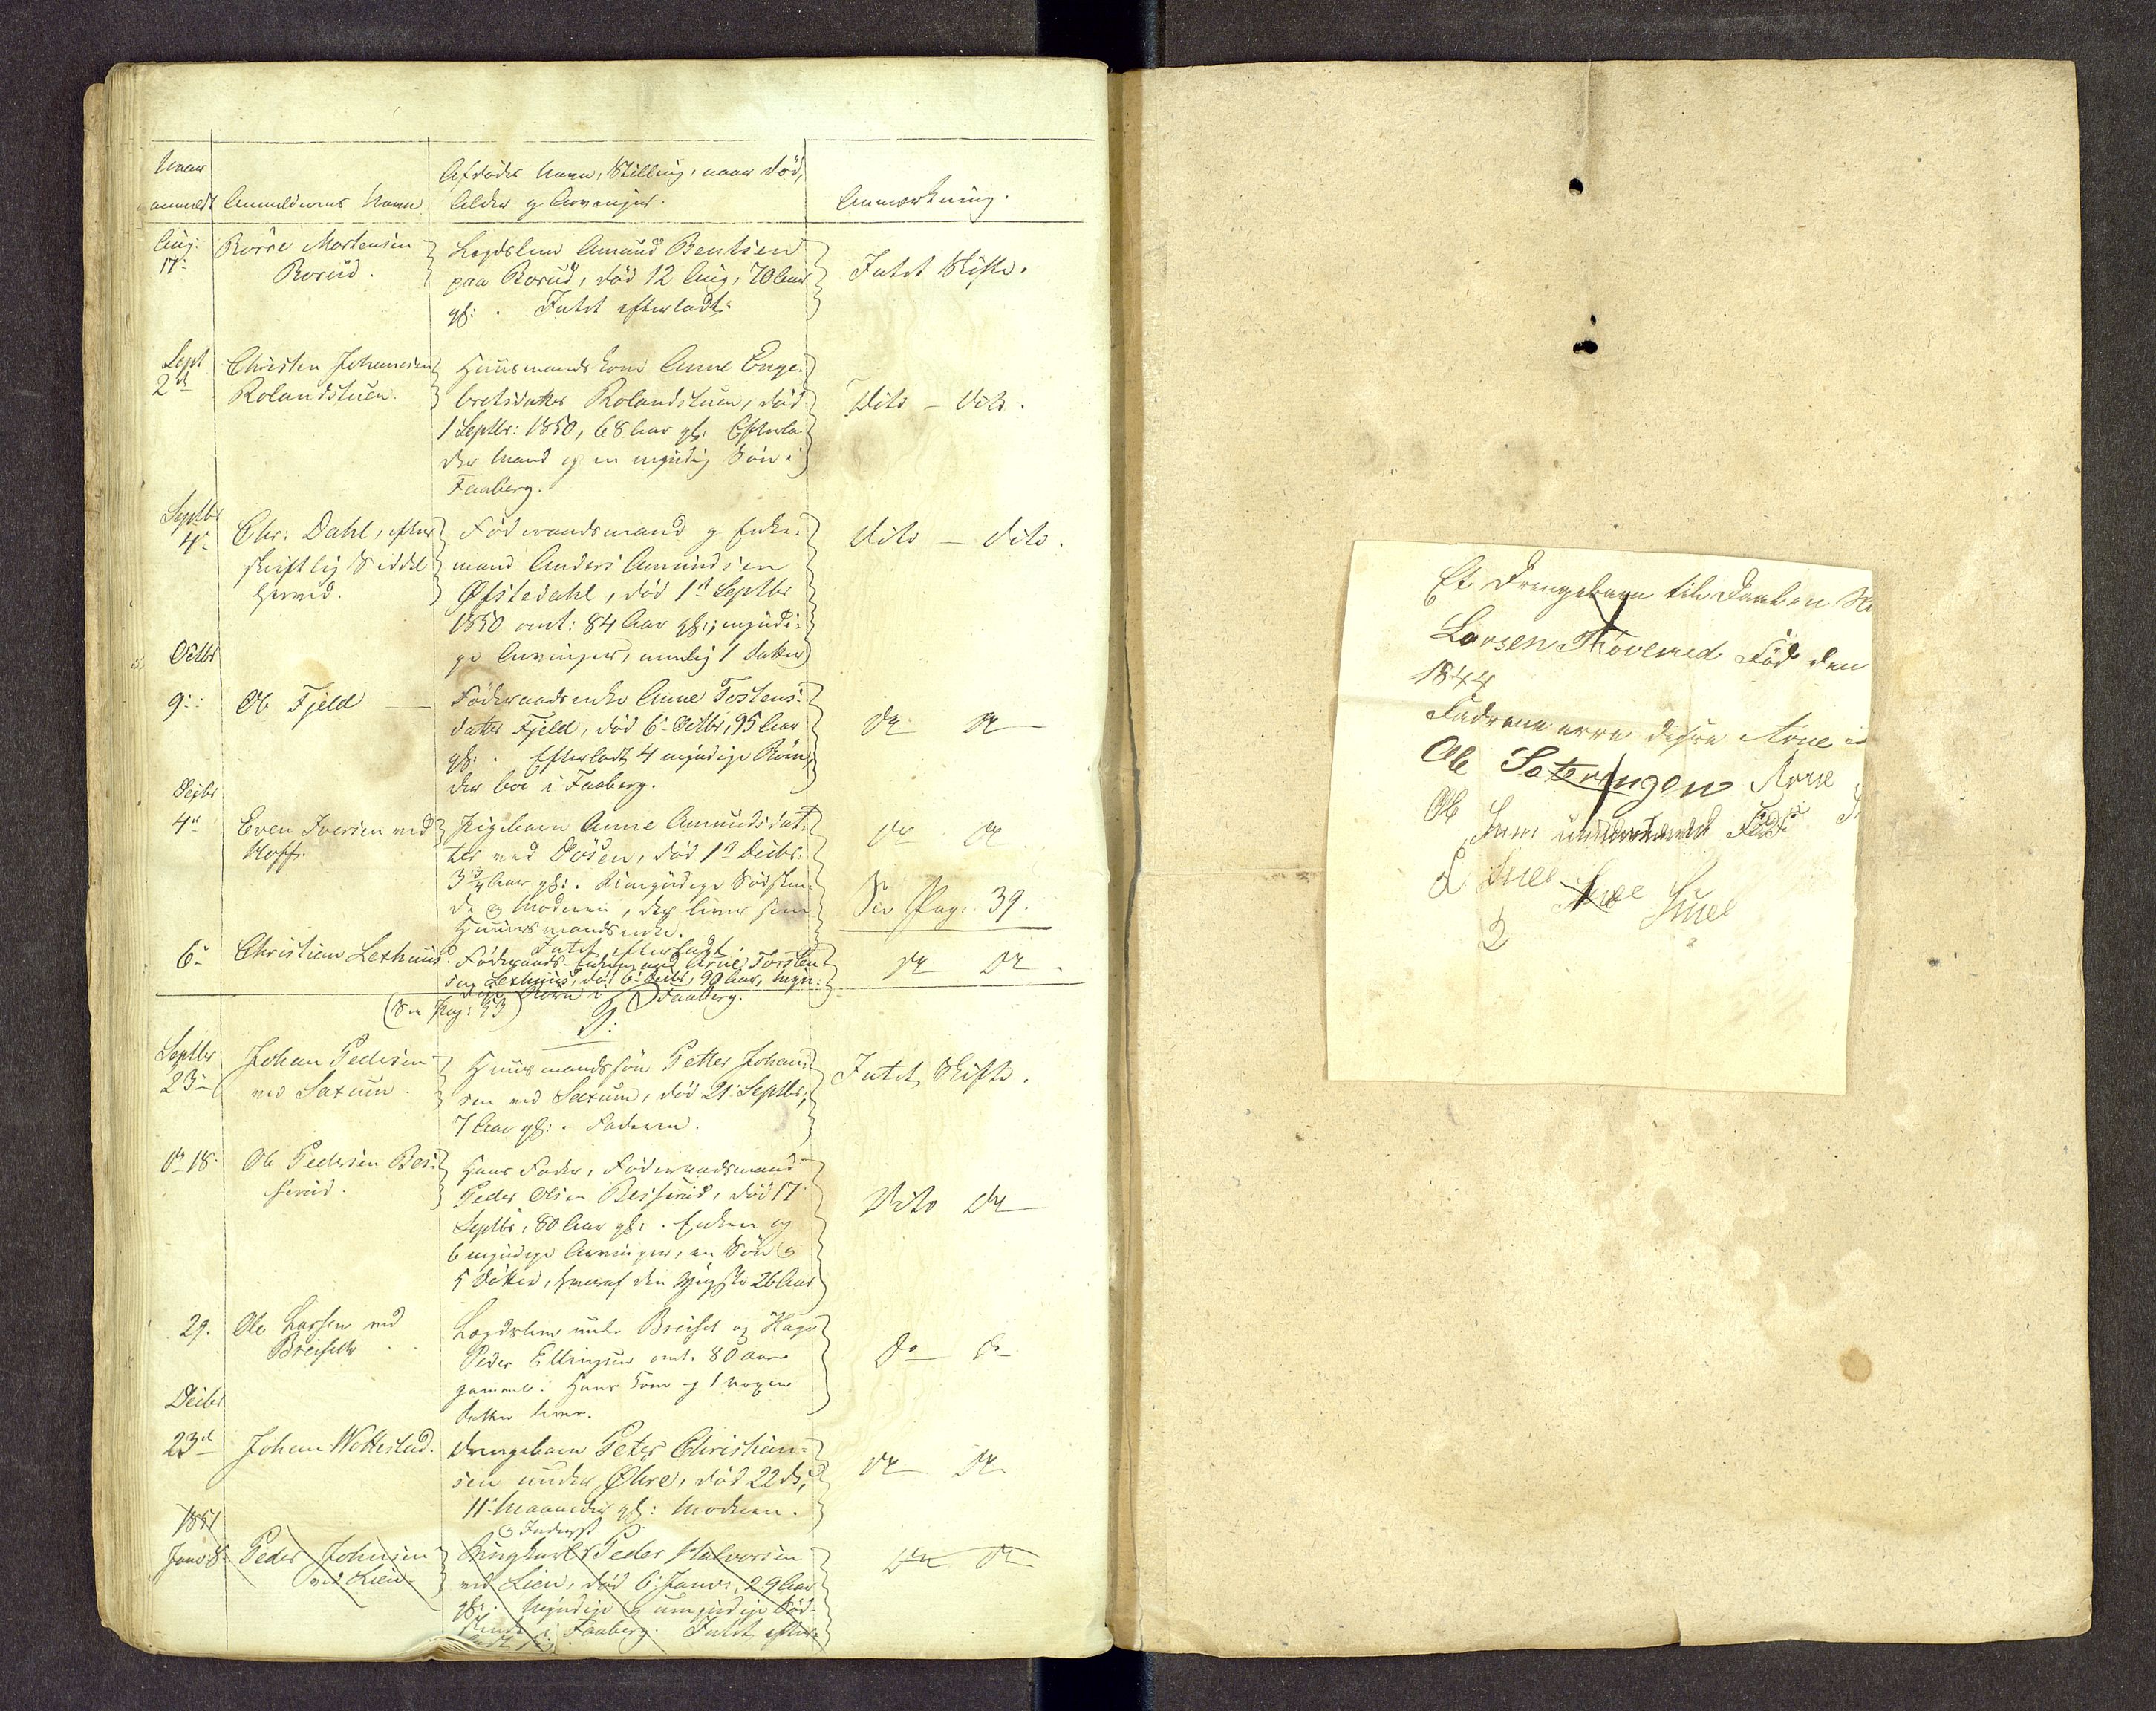 Naar
anmeldt
Anmelderens Navn
Afdødes Navn, Stilling, naar død,
Alder og Arvinger.
Anmærkning.
Aug:
17:
Borre Mortensen
Borud.
Lægdslem Amund Bentsen
paa Borud, død 12 Aug, 70 Aar
gl: . Intet efterladt.
Intet Skifte.
Sept
2d
Christen Johannesen
Rolandstuen.
Huusmandskone Anne Enge-
bretsdatter Rolandstuen, død
1 Septbr: 1850, 68 Aar gl: Efterla-
der Mand og en myndig Søn i
Faaberg.
Dito – Dito.
Septbr
4
Chr: Dahl, efter
skriftlig Seddel
herved.
Føderaadsmand og Enke-
mand Anders Amundsen
Øfstedahl, død 1st Septbr
1850 omt: 84 Aar gl:, myndi-
ge Arvinger, nemlig 1 Datter
Dito – Dito.
Octbr
9:
Ole Fjeld
Føderaadsenke Anne Tostens-
datter Fjeld, død 6 Octbr, 95 Aar
gl: . Efterladt 4 myndige Børn,
der boe i Faaberg.
Do Do
Decbr
4
Even Iversen ved
Hoff.
Pigebarn Anne Amundsdat-
ter ved Døsen, død 1st Decbr:
3 3/4 Aar gl: . Umyndige Sødsken-
de & Moderen, der lever som
Huusmandsenke.
Intet efterladt.
Do Do
See Pag: 39.
6
Christian Lexhuus.
Føderaads-Enkemand Arne Torsten-
sen Lexhuus, død 6 Decbr, 90 Aar, Myn-
dige Børn i Faaberg.
Do Do
(See Pag: 33)
P:
Septbr
23
Johan Pedersen
ved Saxum.
Huusmandssøn Petter Johan-
sen ved Saxum, død 21 Septbr,
7 Aar gl: . Faderen.
Intet Skifte.
Do 18
Ole Pedersen Bes-
serud.
Hans Fader, Føderaadsmand
Peder Olsen Besserud, død 17
Septbr, 80 Aar gl: . Enken og
6 myndige Arvinger, en Søn &
5 Døttre, hvoraf den yngste 26 Aar
Dito Do
29.
Ole Larsen ved
Breiseth
Lægdslem under Breiset og Hage
Peder Ellingsen omt. 80 aar
gammel. Hans Kone og 1 voxen
Datter lever.
Do Do
Decbr
23d
Johan Nottestad.
Drengebarn Peter Christian-
sen under Øhre, død 22 ds,
11 Maaneder gl: Moderen.
Do Do
1851
Janr 8
Peder Johnsen
ved Lien
& Inderst
Ungkarl Peder Halvorsen
ved Lien, død 6 Janr:, 29 Aar
gl: . Myndige & umyndige Sød-
skende i Faaberg. Intet efter-
ladt
Do Do
Et Drengebarn til Daaben
Larsen Skovered Fød den
1844
Fadrene erre disse Arne
Ole Soterengen Arne
Ole
Suee
Suee
Suee